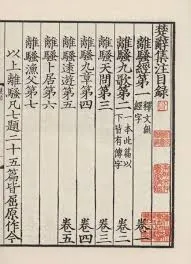 楚辭集注目錄
離騷經第一 釋文無經字 卷一
離騷九歌第二 一本此篇以下皆有傳字 卷二
離騷天問第三 卷三
離騷九章第四 卷四
離騷遠遊第五
離騷卜居第六
離騷漁父第七 卷五
以上離騷凡七題二十五篇皆屈原作今